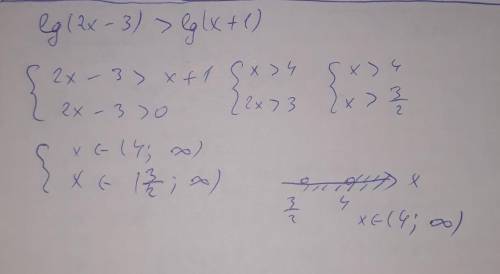 lg(2x - 3) > lg(x + 1)
{ 2x - 3 > x + 1 { x > 4 { x > 4
2x - 3 > 0 2x > 3 x > 3/2
{ x ∈ (4; ∞)
x ∈ (3/2; ∞)
3/2 4 x
x ∈ (4; ∞)